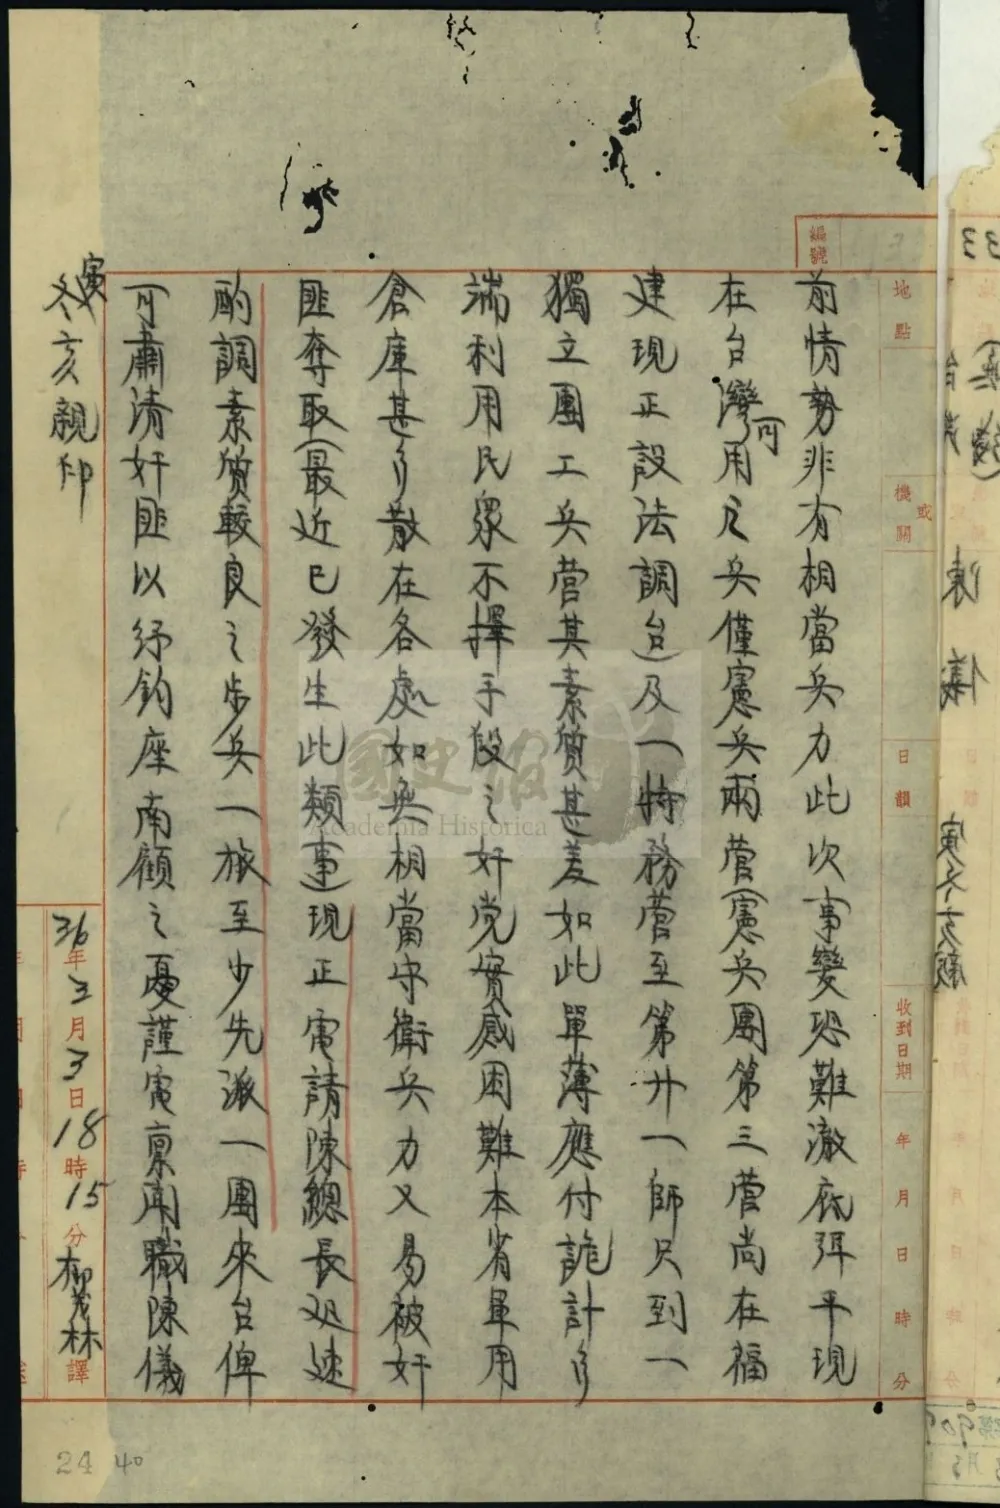 編號
地點
機關
或
日韻
收到日期
年月日時分
前情勢非有相當兵力此次事變恐難澈底弭平現
在台灣可用之兵僅憲兵兩營(憲兵團第三營尚在福
建現正設法調台)及一特務營至第廿一師只到一
獨立團工兵營其素質甚差如此單薄應付詭計多
端利用民眾不擇手段之奸党實感困難本省軍用
倉庫甚多散在各處如無相當守衛兵力又易被奸
匪奪取(最近已發生此類事)現正電請陳總長迅速
酌調素質較良之步兵一旅至少先派一團來台俾
可肅清奸匪以紓鈞座南顧之憂謹電稟聞職陳儀
寅冬亥親印
36年3月3日18時15分柳茂林譯
國史館
Academia Historica
24 40